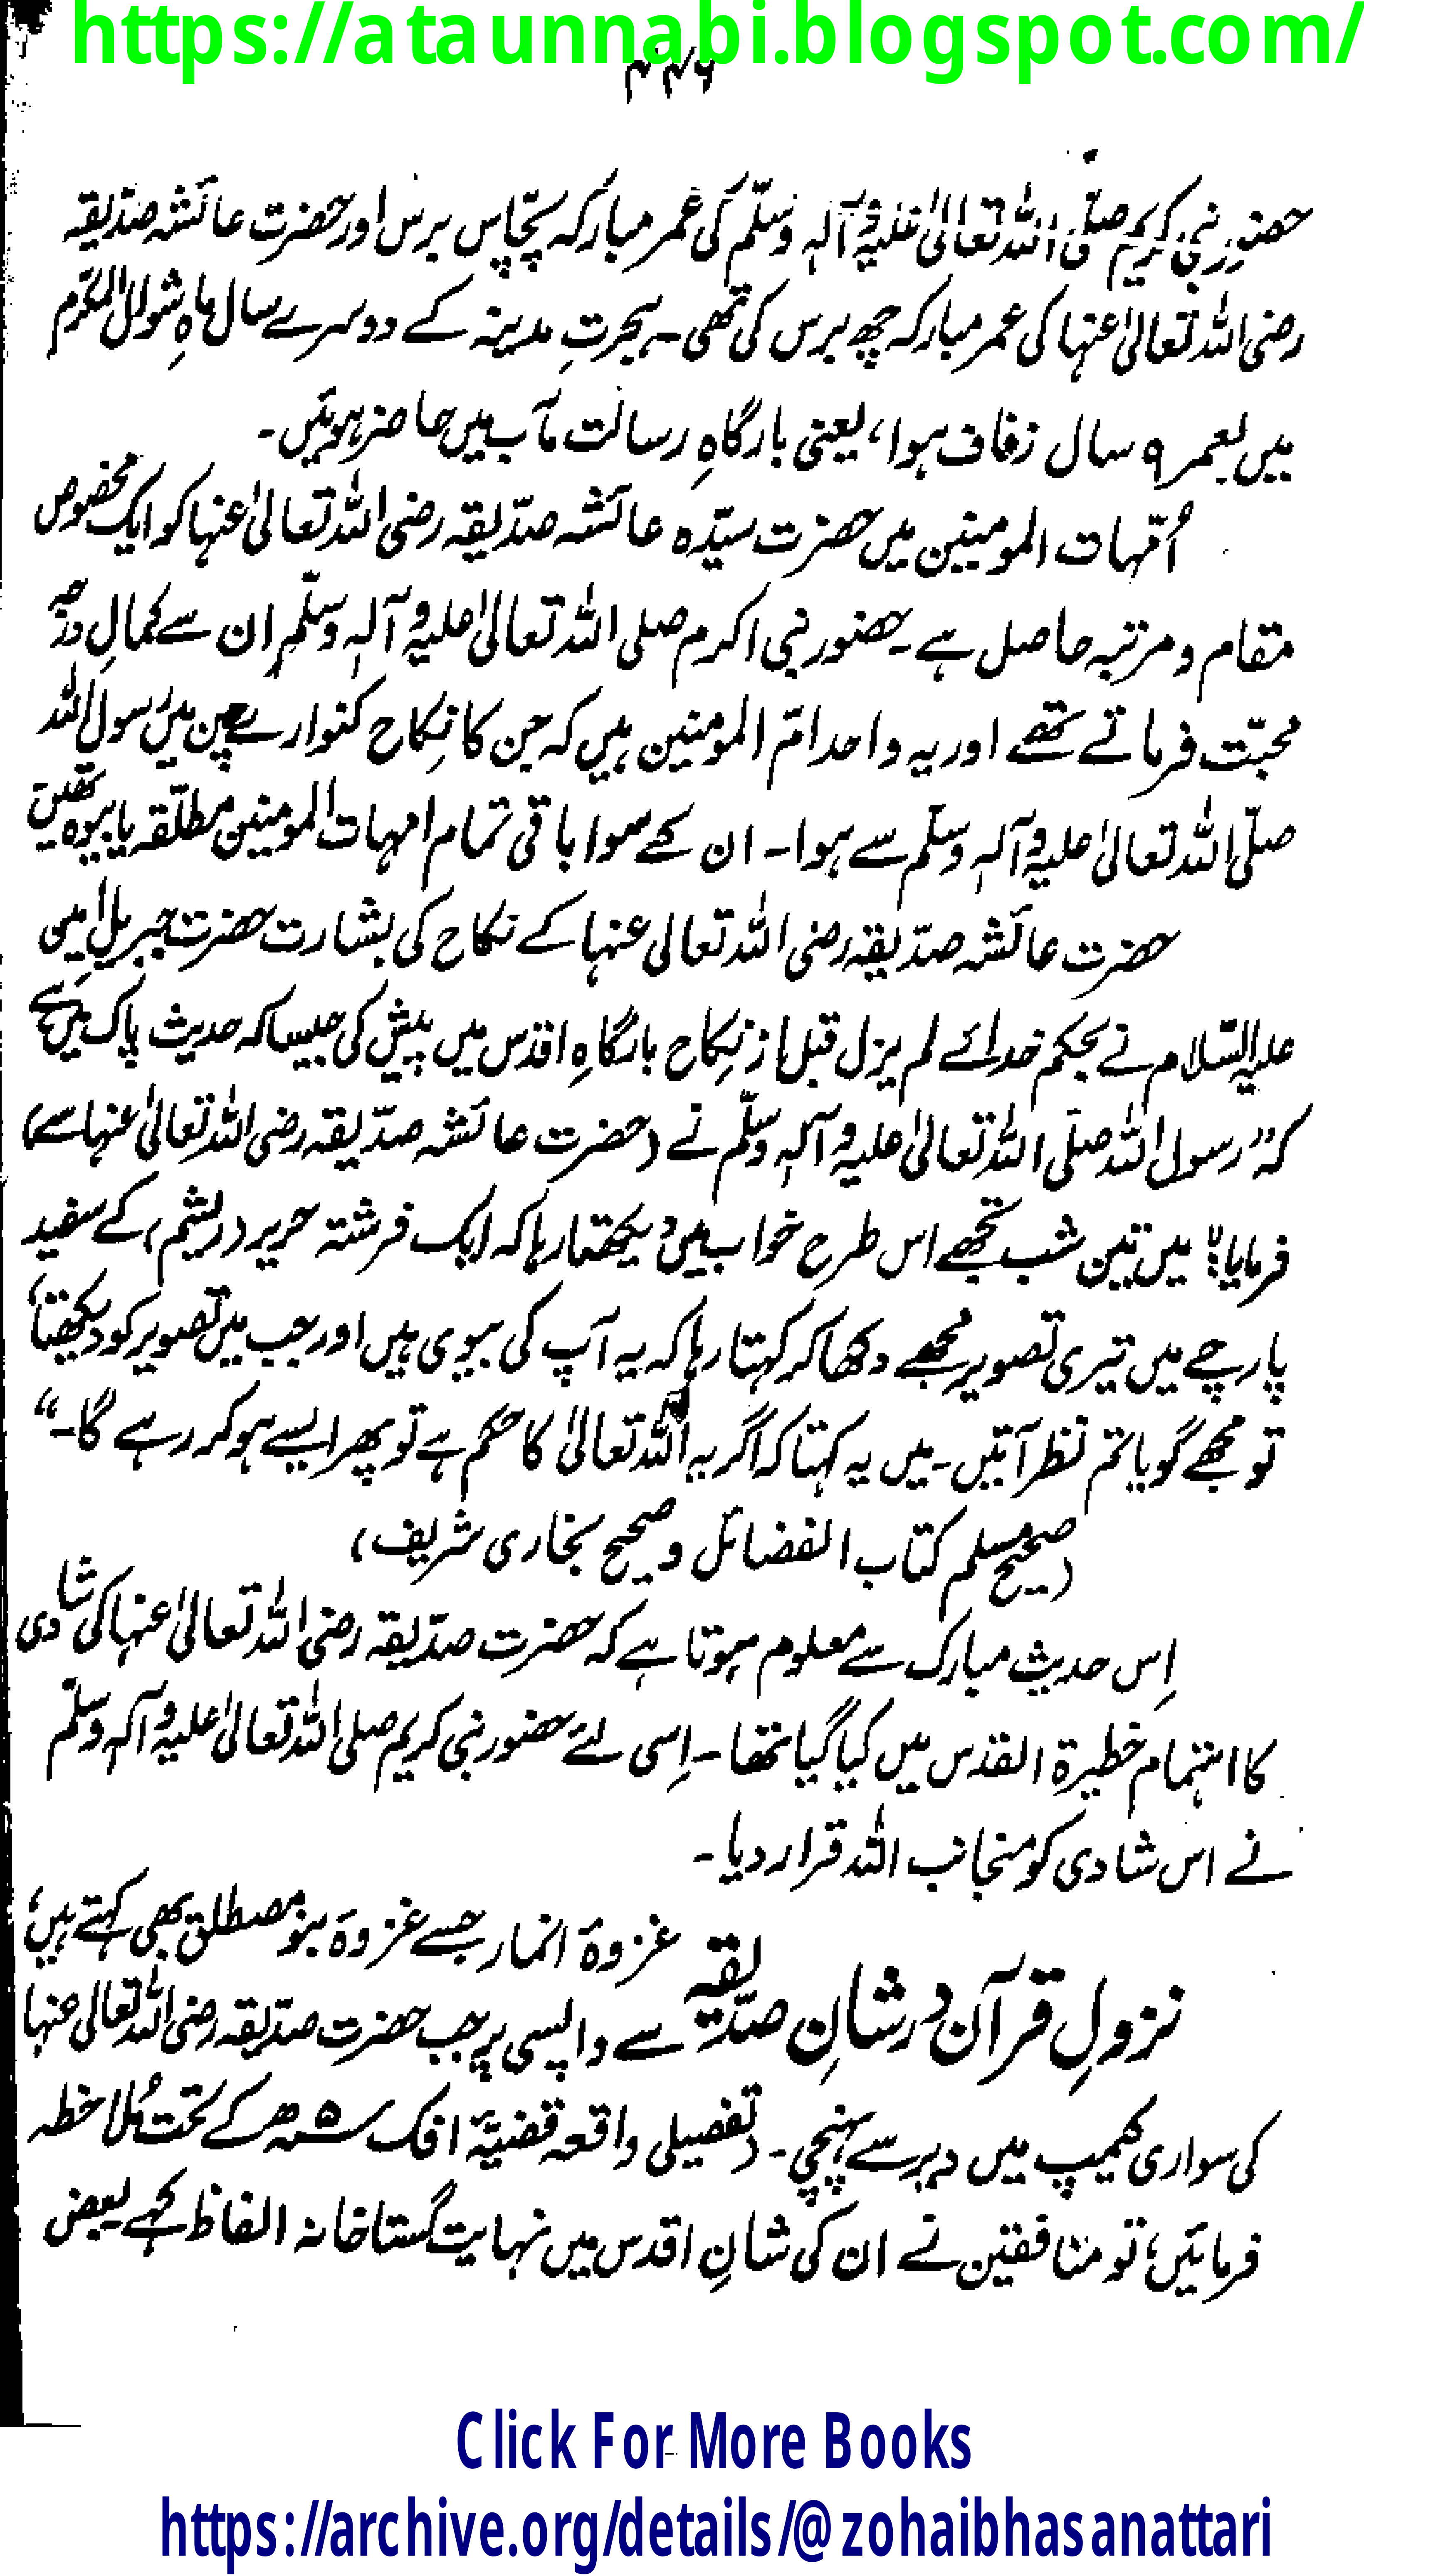 https://ataunnabi.blogspot.com/
۴۴۶
حضور نبی کریم صلّی اللہ تعالیٰ علیہ وآلہٖ وسلّم کی عمر مبارکہ پچّاس برس اور حضرت عائشہ صدّیقہ
رضی اللہ تعالیٰ عنہا کی عمر مبارکہ چھ برس کی تھی۔ ہجرتِ مدینہ کے دوسرے سال ماہِ شوال المکرّم
میں بعمر ۹ سال زفاف ہوا، یعنی بارگاہِ رسالت مآب میں حاضر ہوئیں۔
اُمّہات المومنین میں حضرت سیّدہ عائشہ صدّیقہ رضی اللہ تعالیٰ عنہا کو ایک مخصوص
مقام و مرتبہ حاصل ہے۔ حضور نبی اکرم صلی اللہ تعالیٰ علیہ وآلہٖ وسلّم ان سے کمالِ درجہ
محبّت فرماتے تھے اور یہ واحد امّ المومنین ہیں کہ جن کا نِکاح کنوارے پن میں رسول اللہ
صلّی اللہ تعالیٰ علیہ وآلہٖ وسلّم سے ہوا۔ ان کے سوا باقی تمام امہات المومنین مطلّقہ یا بیوہ تھیں۔
حضرت عائشہ صدّیقہ رضی اللہ تعالیٰ عنہا کے نکاح کی بشارت حضرت جبریلِ امیں
علیہ السّلام نے بحکم خدائے لم یزل قبل از نِکاح بارگاہِ اقدس میں پیش کی جیسا کہ حدیث پاک میں ہے
کہ ”رسول اللہ صلّی اللہ تعالیٰ علیہ وآلہٖ وسلّم نے (حضرت عائشہ صدّیقہ رضی اللہ تعالیٰ عنہا سے)
فرمایا: میں تین شب تجھے اس طرح خواب میں دیکھتا رہا کہ ایک فرشتہ حریر (ریشم) کے سفید
پارچے میں تیری تصویر مجھے دکھا کر کہتا رہا کہ یہ آپ کی بیوی ہیں اور جب میں تصویر کو دیکھتا،
تو مجھے گویا تم نظر آتیں۔ میں یہ کہتا کہ اگر یہ اللہ تعالیٰ کا حکم ہے تو پھر ایسے ہو کر رہے گا۔“
(صحیح مسلم کتاب الفضائل و صحیح بخاری شریف)
اِس حدیث مبارک سے معلوم ہوتا ہے کہ حضرت صدّیقہ رضی اللہ تعالیٰ عنہا کی شادی
کا اہتمام خطیرۃ القدس میں کیا گیا تھا۔ اِسی لئے حضور نبی کریم صلی اللہ تعالیٰ علیہ وآلہٖ وسلّم
نے اس شادی کو منجانب اللہ قرار دیا۔
نزولِ قرآن در شانِ صدّیقہ غزوۂ انمار جسے غزوۂ بنو مصطلق بھی کہتے ہیں،
سے واپسی پر جب حضرت صدّیقہ رضی اللہ تعالیٰ عنہا
کی سواری کیمپ میں دیر سے پہنچی۔ (تفصیلی واقعہ قضیّۂ افک ۵ھ کے تحت مُلاحظہ
فرمائیں) تو منافقین نے ان کی شانِ اقدس میں نہایت گستاخانہ الفاظ کہے بعض
Click For More Books
https://archive.org/details/@zohaibhasanattari